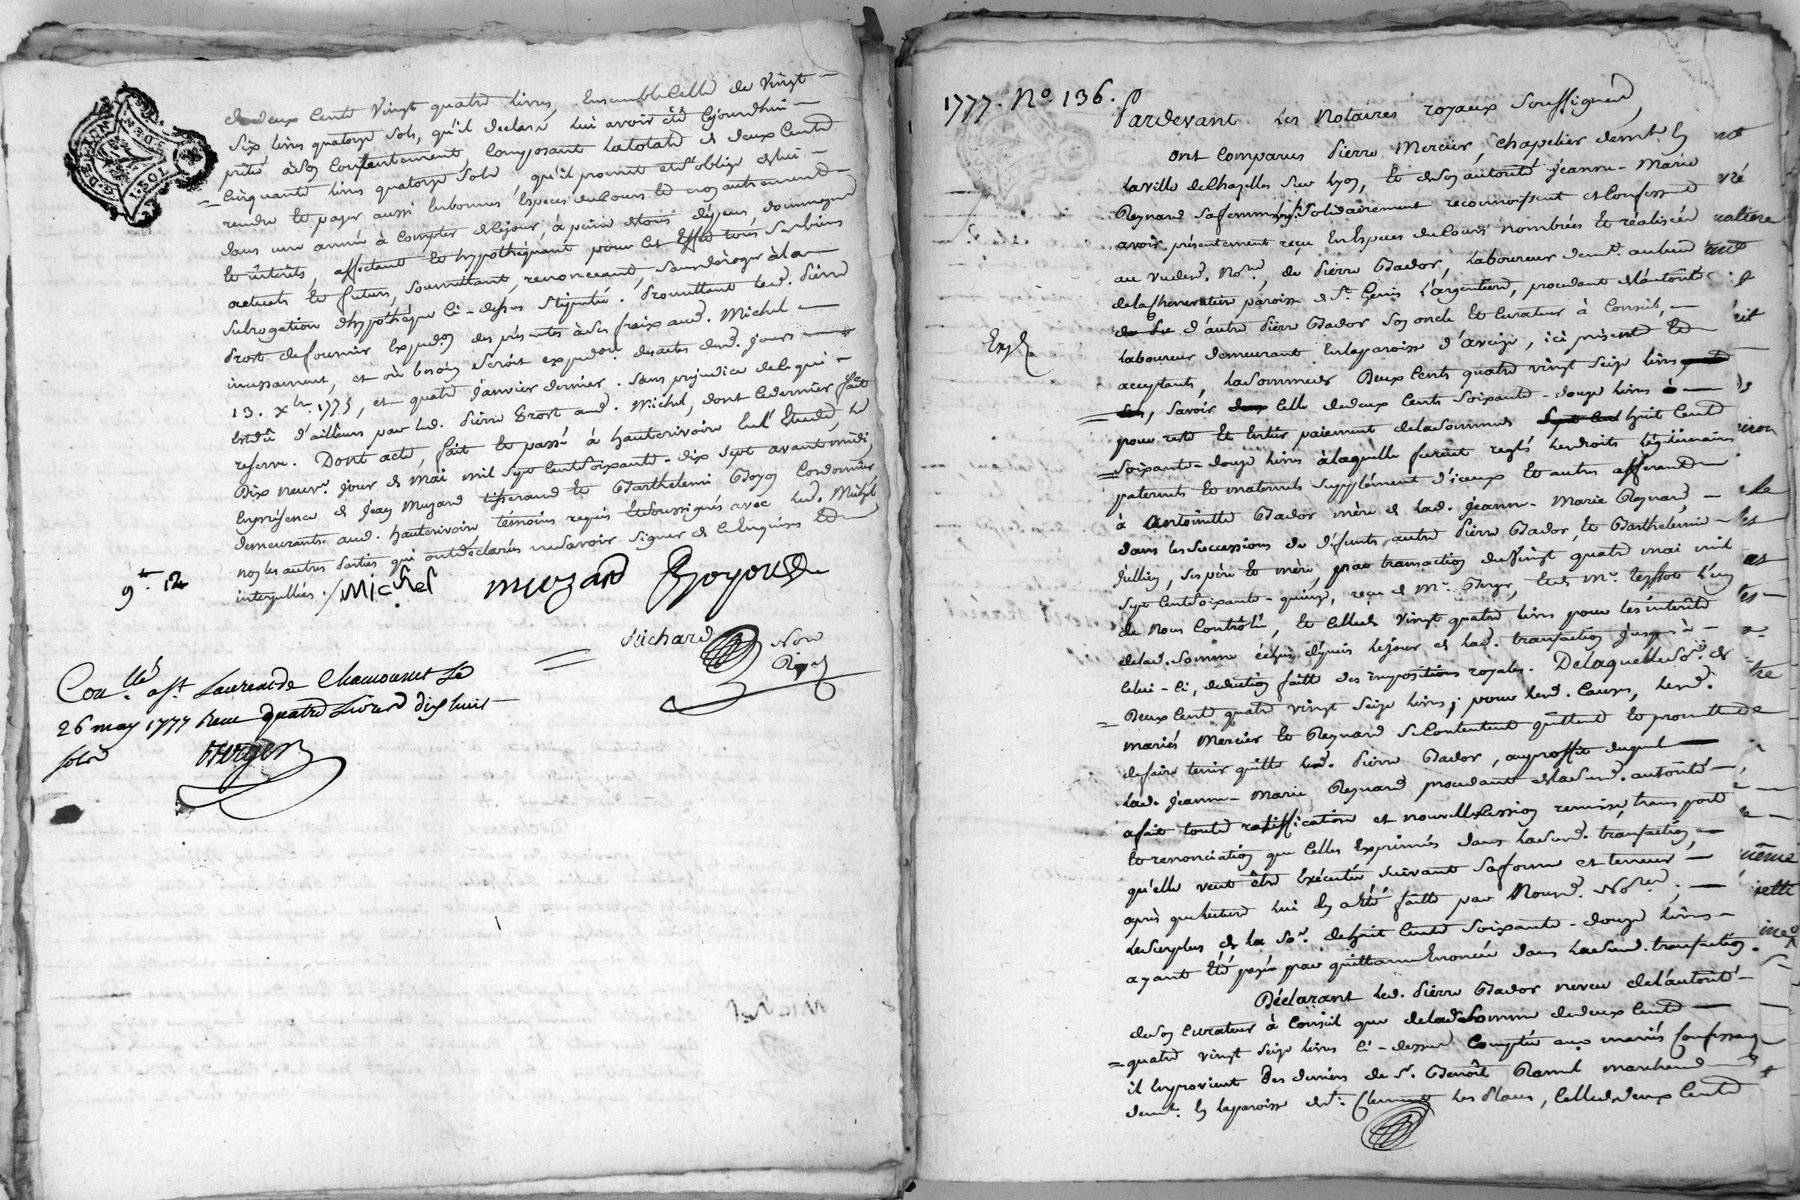 dedeux Cents Vingt quatre livres, Ensemble Celle de Vingt
Six livres quatorze sols, qu'il declare lui avoir été cejourdhui
prêté à Son Contentement, Composant latotale de deux Cents
Cinquante livres quatorze Sols qu'il promet et s'oblige de lui
rendre et payer aussi En bonnes Especes du Cours et non autrement
dans une année à Compter de ce jour, à peine de tous dépens, dommages
et interets, affectant et hypothéquant pour cet Effet tous Ses biens
actuels et futurs, Soumettant, renonceant, Sans déroger à la
Subrogation d'hypothéque Ci-dessus Stipulée. Promettant led. Pierre
Prost defournir Expedon des présentes à Ses fraix aud. Michel
incessament, et où besoin Seroit expedon desactes desd. jours
13. xbre 1775, et quatre janvier dernier. Sans prejudice de ce qui
est dû d'ailleurs par led. Pierre Prost aud. Michel, dont Ce dernier fait
reserve. Dont acte, fait et passé à hauterivoire En l'Etude, le
Dix neuve. jour de Mai mil Sept Cent Soixante-dix Sept avant midi,
En présence de Jean Muzard tisserand et Barthelemi Goyon Cordonnier
demeurants aud. hauterivoire témoins requis et Soussignés avec led. Michel
non les autres Parties qui ont déclarées ne Savoir Signer de Ce Enquises et
interpellées. Michel Muzard
Richard Nore
Royal
9. te 12
Con.llé à St. Laurent de Chamousset le
26 may 1777 Reçu quatre Livres dix huit
sols
Berger
1777. No. 136.
Pardevant Les Notaires royaux Soussignés,
ont Comparus Pierre Mercier, Chapelier demt. En
la Ville de Chazelles Sur Lyon, Et de Son autorité Jeanne-Marie
Reynard Sa femme, Solidairement reconnoissent et Confessent
avoir présentement reçu En Especes du Cours nombrées et réalisées
au Vu desd. Nores, de Pierre Bador, Laboureur demt. au lieu
de la paroisse de St. Genis L'argentiere, procedant de l'autorité
d'autre Pierre Bador Son oncle Et Curateur à Conseil,
Laboureur demeurant En la paroisse d'aveize, ici présent et
Exp.
acceptants, La Somme de Deux Cents quatre vingt Seize livres
Savoir Celle de deux Cents Soixante-douze livres
pour reste Et Entier paiement de la Somme de huit Cents
Soixante-douze livres à laquelle furent reglés les droits légitimaires
paternels Et maternels Supplément d'iceux Et autres afferants
à Antoinette Bador mère de lad. Jeanne-Marie Reynard,
dans les Successions de défunts autre Pierre Bador, Et Barthelemie
Jullien, Ses père Et mère, par transaction du Vingt quatre mai mil
Sept Cent Soixante-quinze, reçue de Me. Berger, Et de Me. l'un
de Nous Controllé, Et Celle de Vingt quatre livres pour les intérêts
de lad. Somme échus depuis le jour de lad. transaction jusqu'à
Celui-ci, deduction faite des impositions royales. De laquelle So.e de
Deux Cent quatre Vingt Seize livres; pour lesd. Causes, lesd.
mariés Mercier et Reynard Se Contentent quittent Et promettent
de faire tenir quitte led. Pierre Bador, au proffit duquel
lad. Jeanne-Marie Reynard procedant de lasusd. autorité
a fait toute ratiffication et nouvelle Cession remise transport
Et renonciation que Celles Exprimées dans la Susd. transaction,
qu'elle veut être Exécutée Suivant Sa forme et teneur
après que lecture lui En a été faitte par Nousd. Nores;
Le Surplus de la So.e de huit Cents Soixante-douze livres
ayant été payé par quittance Enoncée dans la Susd. transaction.
Déclarant led. Pierre Bador neveu de l'autorité
de Son Curateur à Conseil que de la de Somme de deux Cents
quatre Vingt Seize livres Ci-dessus Comptée aux mariés Confessants
il En provient Des deniers de Sr. Benoît Ramel marchand
demt. En la paroisse de St. Clement Les Places, Celle de deux Cents